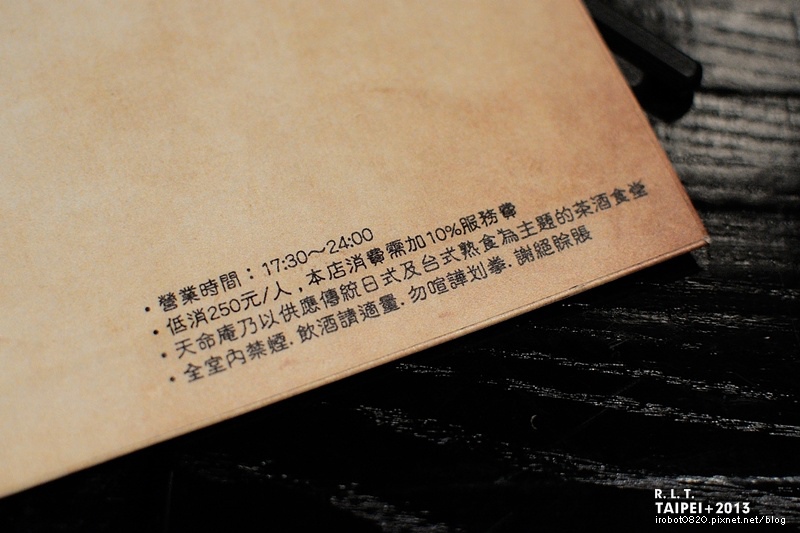 ・營業時間：17:30～24:00
・低消250元/人，本店消費需加10%服務費
・天命庵乃以供應傳統日式及台式熟食為主題的茶酒食堂
・全室內禁煙．飲酒請適量．勿喧譁划拳．謝絕賒賬
R.L.T.
TAIPEI+2013
irobot0820.pixnet.net/blog